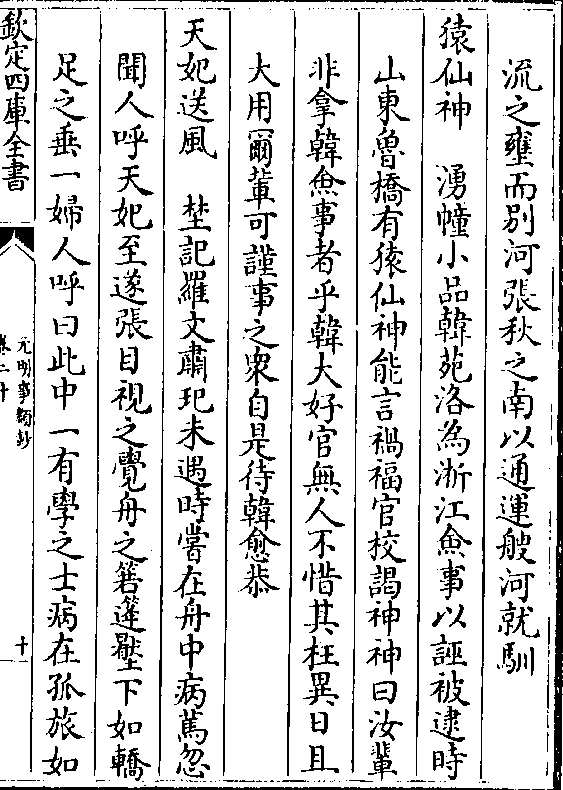 流之壅而别河張秋之南以通運艘河就馴
猿仙神　湧幢小品韓苑洛為浙江僉事以誣被逮時
山東魯橋有猿仙神能言禍福官校謁神神曰汝輩
非拿韓僉事者乎韓大好官無人不惜其枉異日且
大用爾輩可謹事之衆自是待韓愈恭
天妃送風　埜記羅文肅玘未遇時嘗在舟中病篤忽
聞人呼天妃至遂張目視之覺舟之箬篷壓下如轎
足之垂一婦人呼曰此中一有學之士病在孤旅如
欽定四庫全書
元明事類鈔
卷二十
十